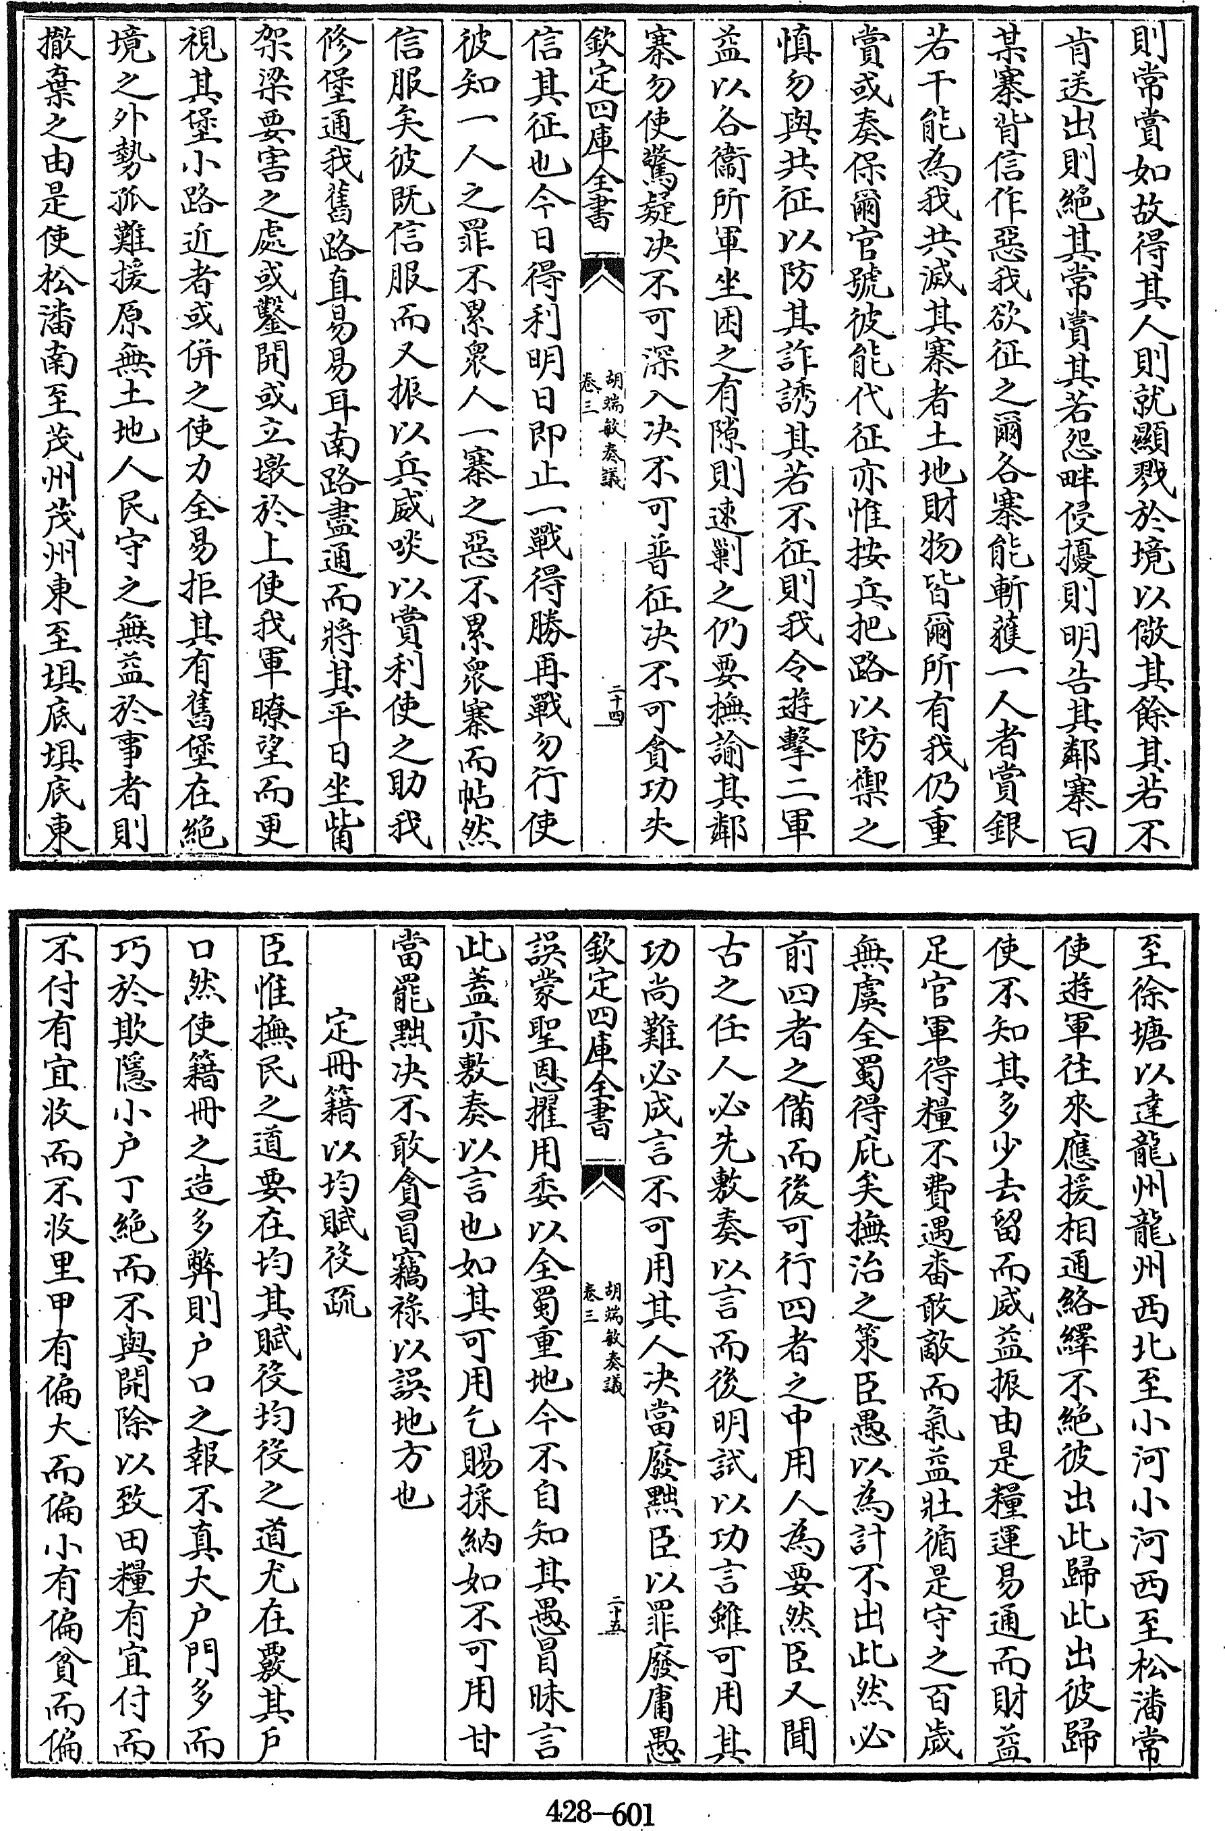 則常賞如故得其人則就顯戮於境以儆其餘其若不
肯送出則絶其常賞其若怨畔侵擾則明告其鄰寨曰
某寨背信作惡我欲征之爾各寨能斬獲一人者賞銀
若干能為我共滅其寨者土地財物皆爾所有我仍重
賞或奏保爾官號彼能代征亦惟按兵把路以防禦之
慎勿與共征以防其詐誘其若不征則我令遊擊二軍
益以各衞所軍坐困之有隙則速剿之仍要撫諭其鄰
寨勿使驚疑决不可深入决不可普征决不可貪功失
欽定四庫全書
胡端敏奏議
卷三
二十四
信其征也今日得利明日即止一戰得勝再戰勿行使
彼知一人之罪不累衆人一寨之惡不累衆寨而帖然
信服矣彼既信服而又振以兵威啖以賞利使之助我
修堡通我舊路直易易耳南路盡通而將其平日坐觜
架梁要害之處或鑿開或立墩於上使我軍瞭望而更
視其堡小路近者或併之使力全易拒其有舊堡在絶
境之外勢孤難援原無土地人民守之無益於事者則
撤棄之由是使松潘南至茂州茂州東至埧底埧底東
至徐塘以達龍州龍州西北至小河小河西至松潘常
使遊軍往來應援相通絡繹不絶彼出此歸此出彼歸
使不知其多少去留而威益振由是糧運易通而財益
足官軍得糧不費遇畨敢敵而氣益壯循是守之百歲
無虞全蜀得庇矣撫治之策臣愚以為計不出此然必
前四者之備而後可行四者之中用人為要然臣又聞
古之任人必先敷奏以言而後明試以功言雖可用其
功尚難必成言不可用其人决當廢黜臣以罪廢庸愚
欽定四庫全書
胡端敏奏議
卷三
二十五
誤蒙聖恩擢用委以全蜀重地今不自知其愚冒昧言
此蓋亦敷奏以言也如其可用乞賜採納如不可用甘
當罷黜决不敢貪冒竊祿以誤地方也
定冊籍以均賦役疏
臣惟撫民之道要在均其賦役均役之道尤在覈其戶
口然使籍冊之造多弊則户口之報不真大户門多而
巧於欺隱小户丁絶而不與開除以致田糧有宜付而
不付有宜收而不收里甲有偏大而偏小有偏貧而偏
428-601